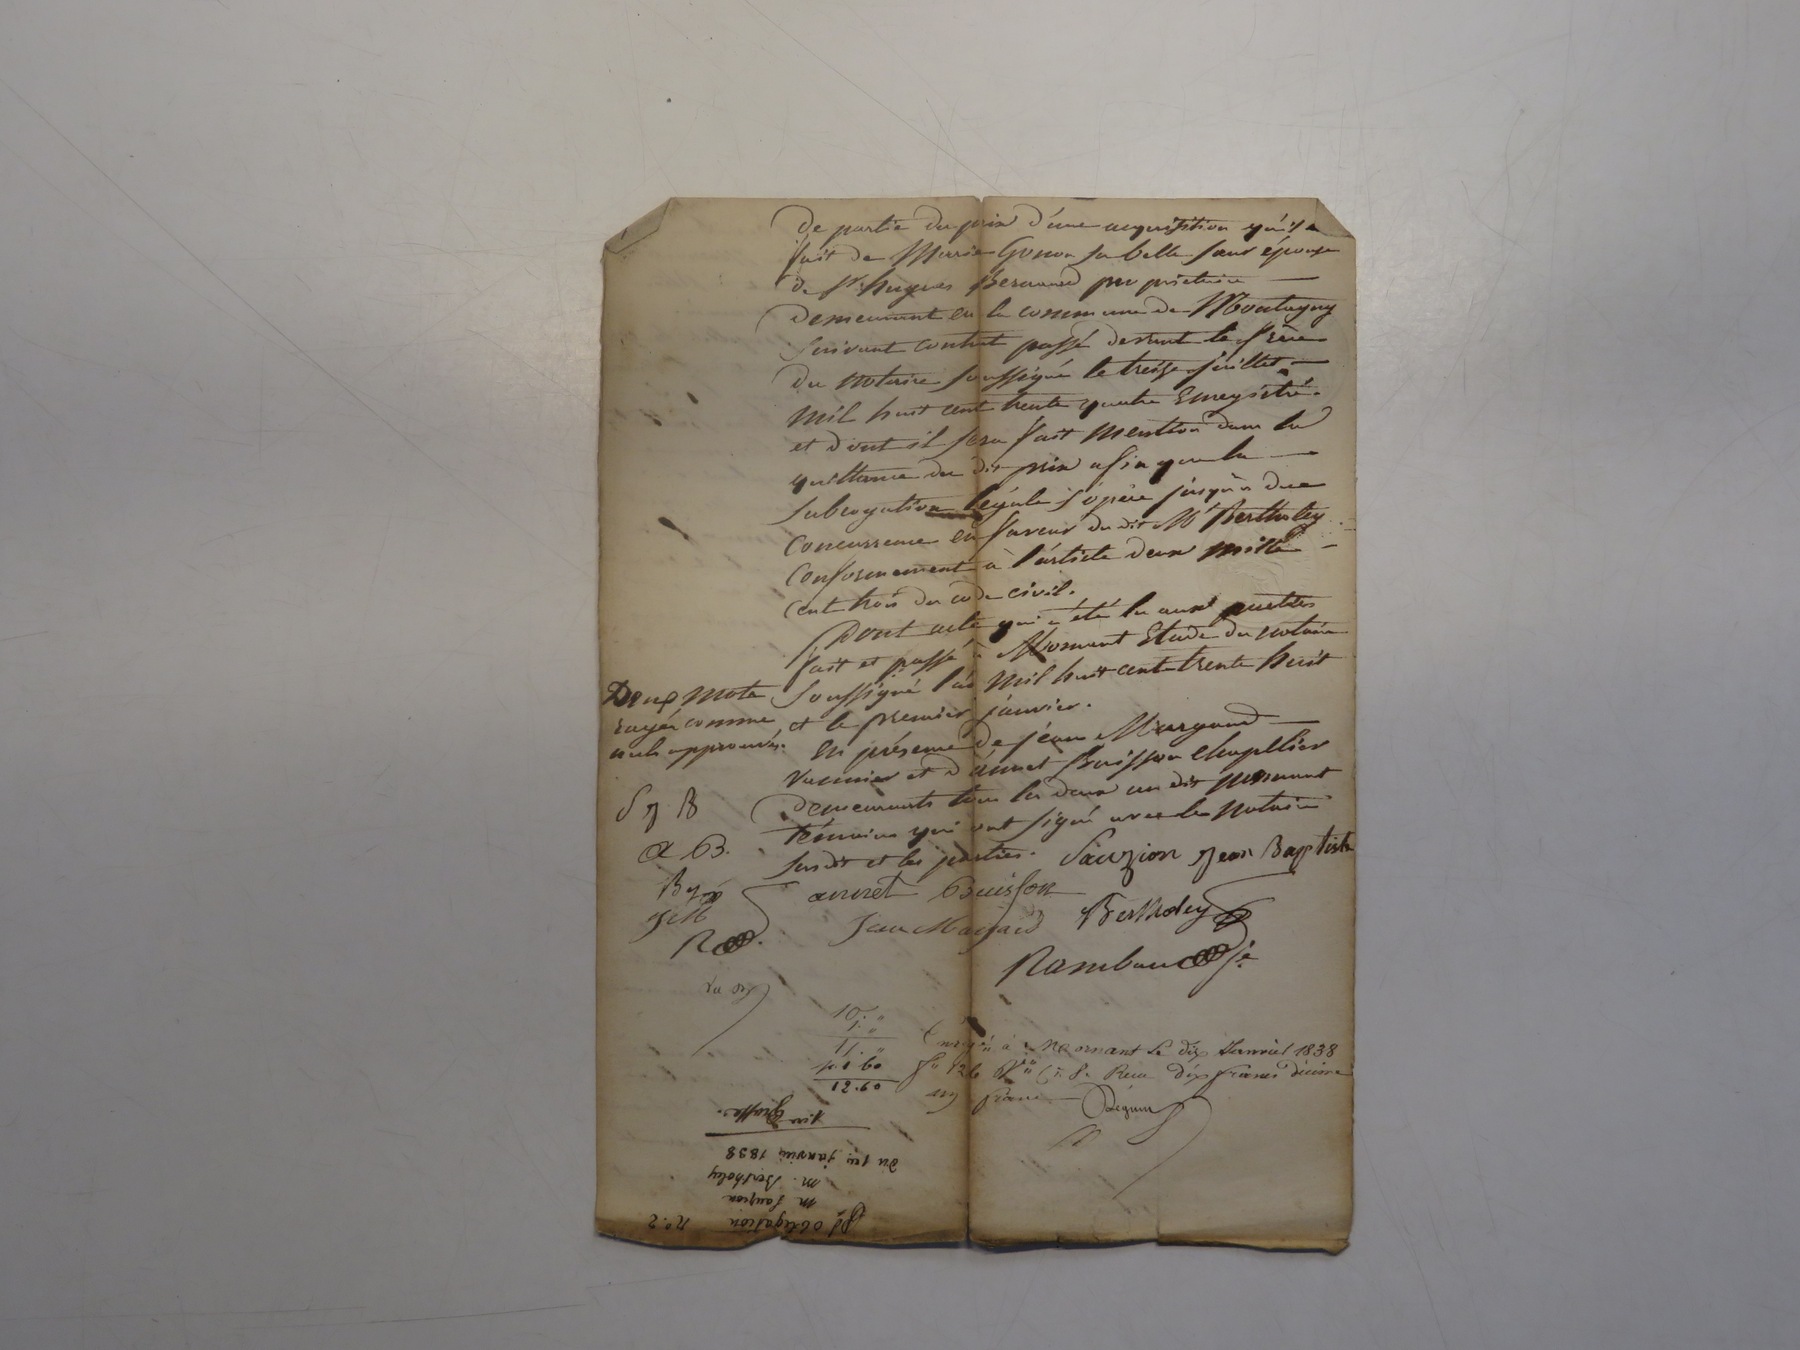 de partie du prix d'une acquisition qu'il a
fait de Marie Gonon sa belle sœur épouse
de Sr hugues Bernard propriétaire
demeurant en la commune de Montagny
suivant contrat passé devant le frère
du notaire soussigné le treize juillet
mil huit cent trente quatre Enregistré.
et dont il sera fait mention dans la
quittance du dit prix afin que la
subrogation légale s'opère jusqu'à due
concurrence en faveur du dit Mr Bertholey
conformement à l'article deux mille
cent trois du code civil.
Dont acte qui a été lu aux parties
fait et passé à Mornant Etude du notaire
soussigné l'an mil huit cent trente huit
et le premier janvier.
En présence de jean Margand
vannier et d'annet Buisson chapellier
demeurants tous les deux au dit mornant
témoins qui ont signé avec le notaire
susdit et les parties.
Deux mots
rayés comme
nuls approuvés.
S J B
a B.
B
J M
R
Sauzion Jean Baptiste
annet Buisson
Jean Margand
Bertholey
Rambaud je
10. "
1. "
11. "
1 60
12.60
Enregtré à Mornant le dix Janvier 1838
fo 126 Vo Cs 8. Recu dix francs décime
un franc
1ere Grosse.
du 1er janvier 1838
M. Bertholey
M Sauzion
obligation
No. 2